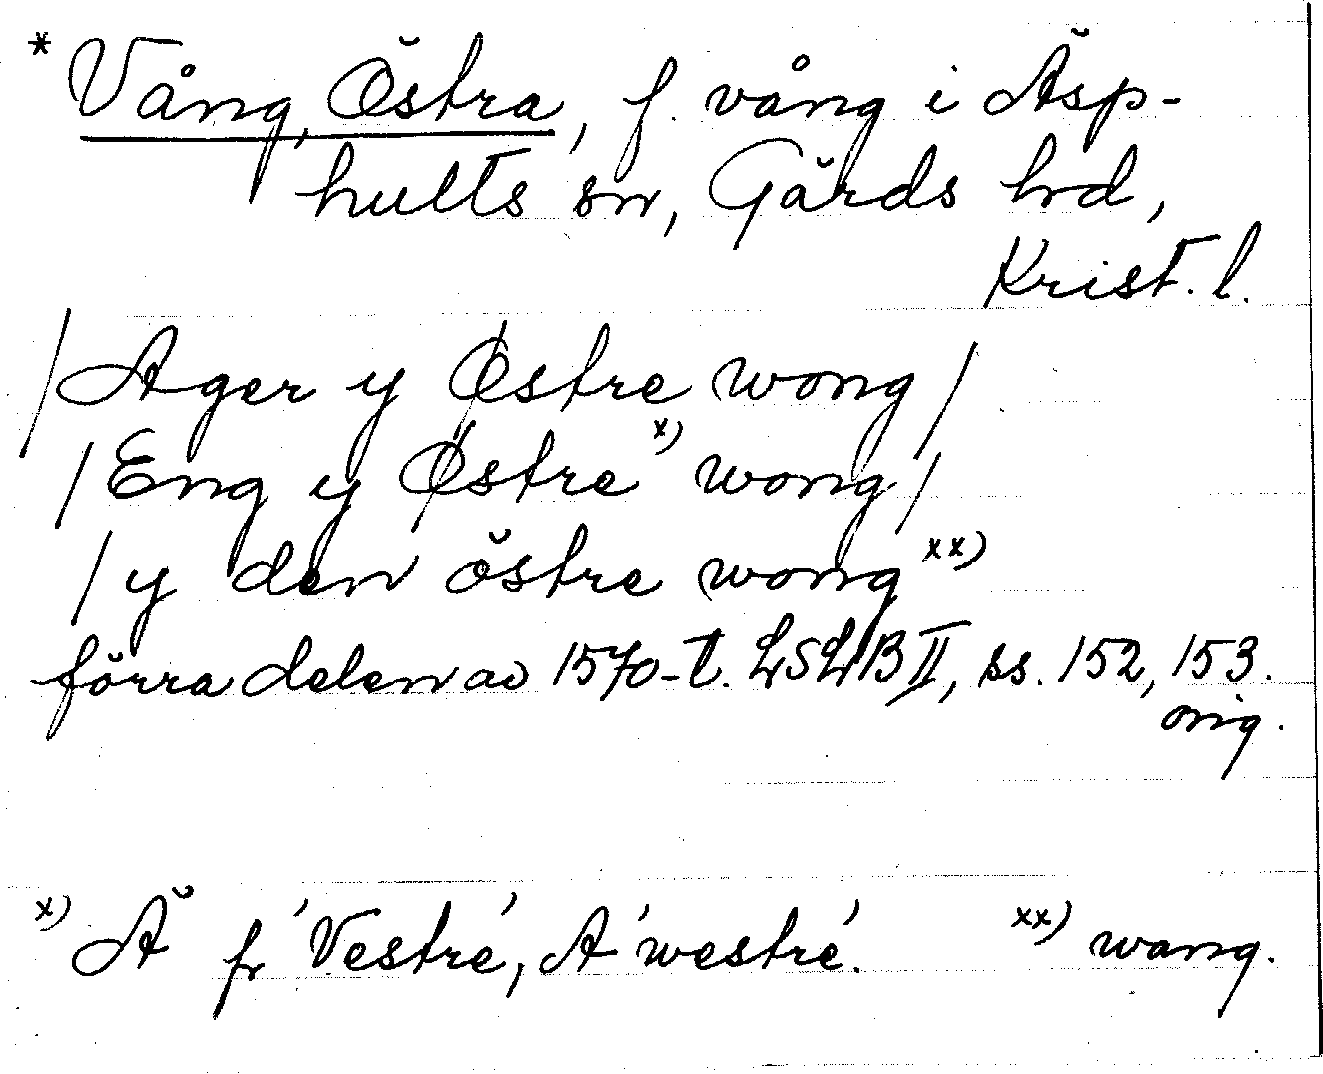 * Vång, Östra, f. vång i Äsp-
hults sn, Gärds hrd,
Krist. l.
/Ager y Østre wong/
/Eng y Østre x) wong/
/y den östre wong xx)
förra delen av 1570-t. LSLB II, ss. 152, 153.
orig.
x) Ä fr 'Vestre', A 'westre'. xx) wang.